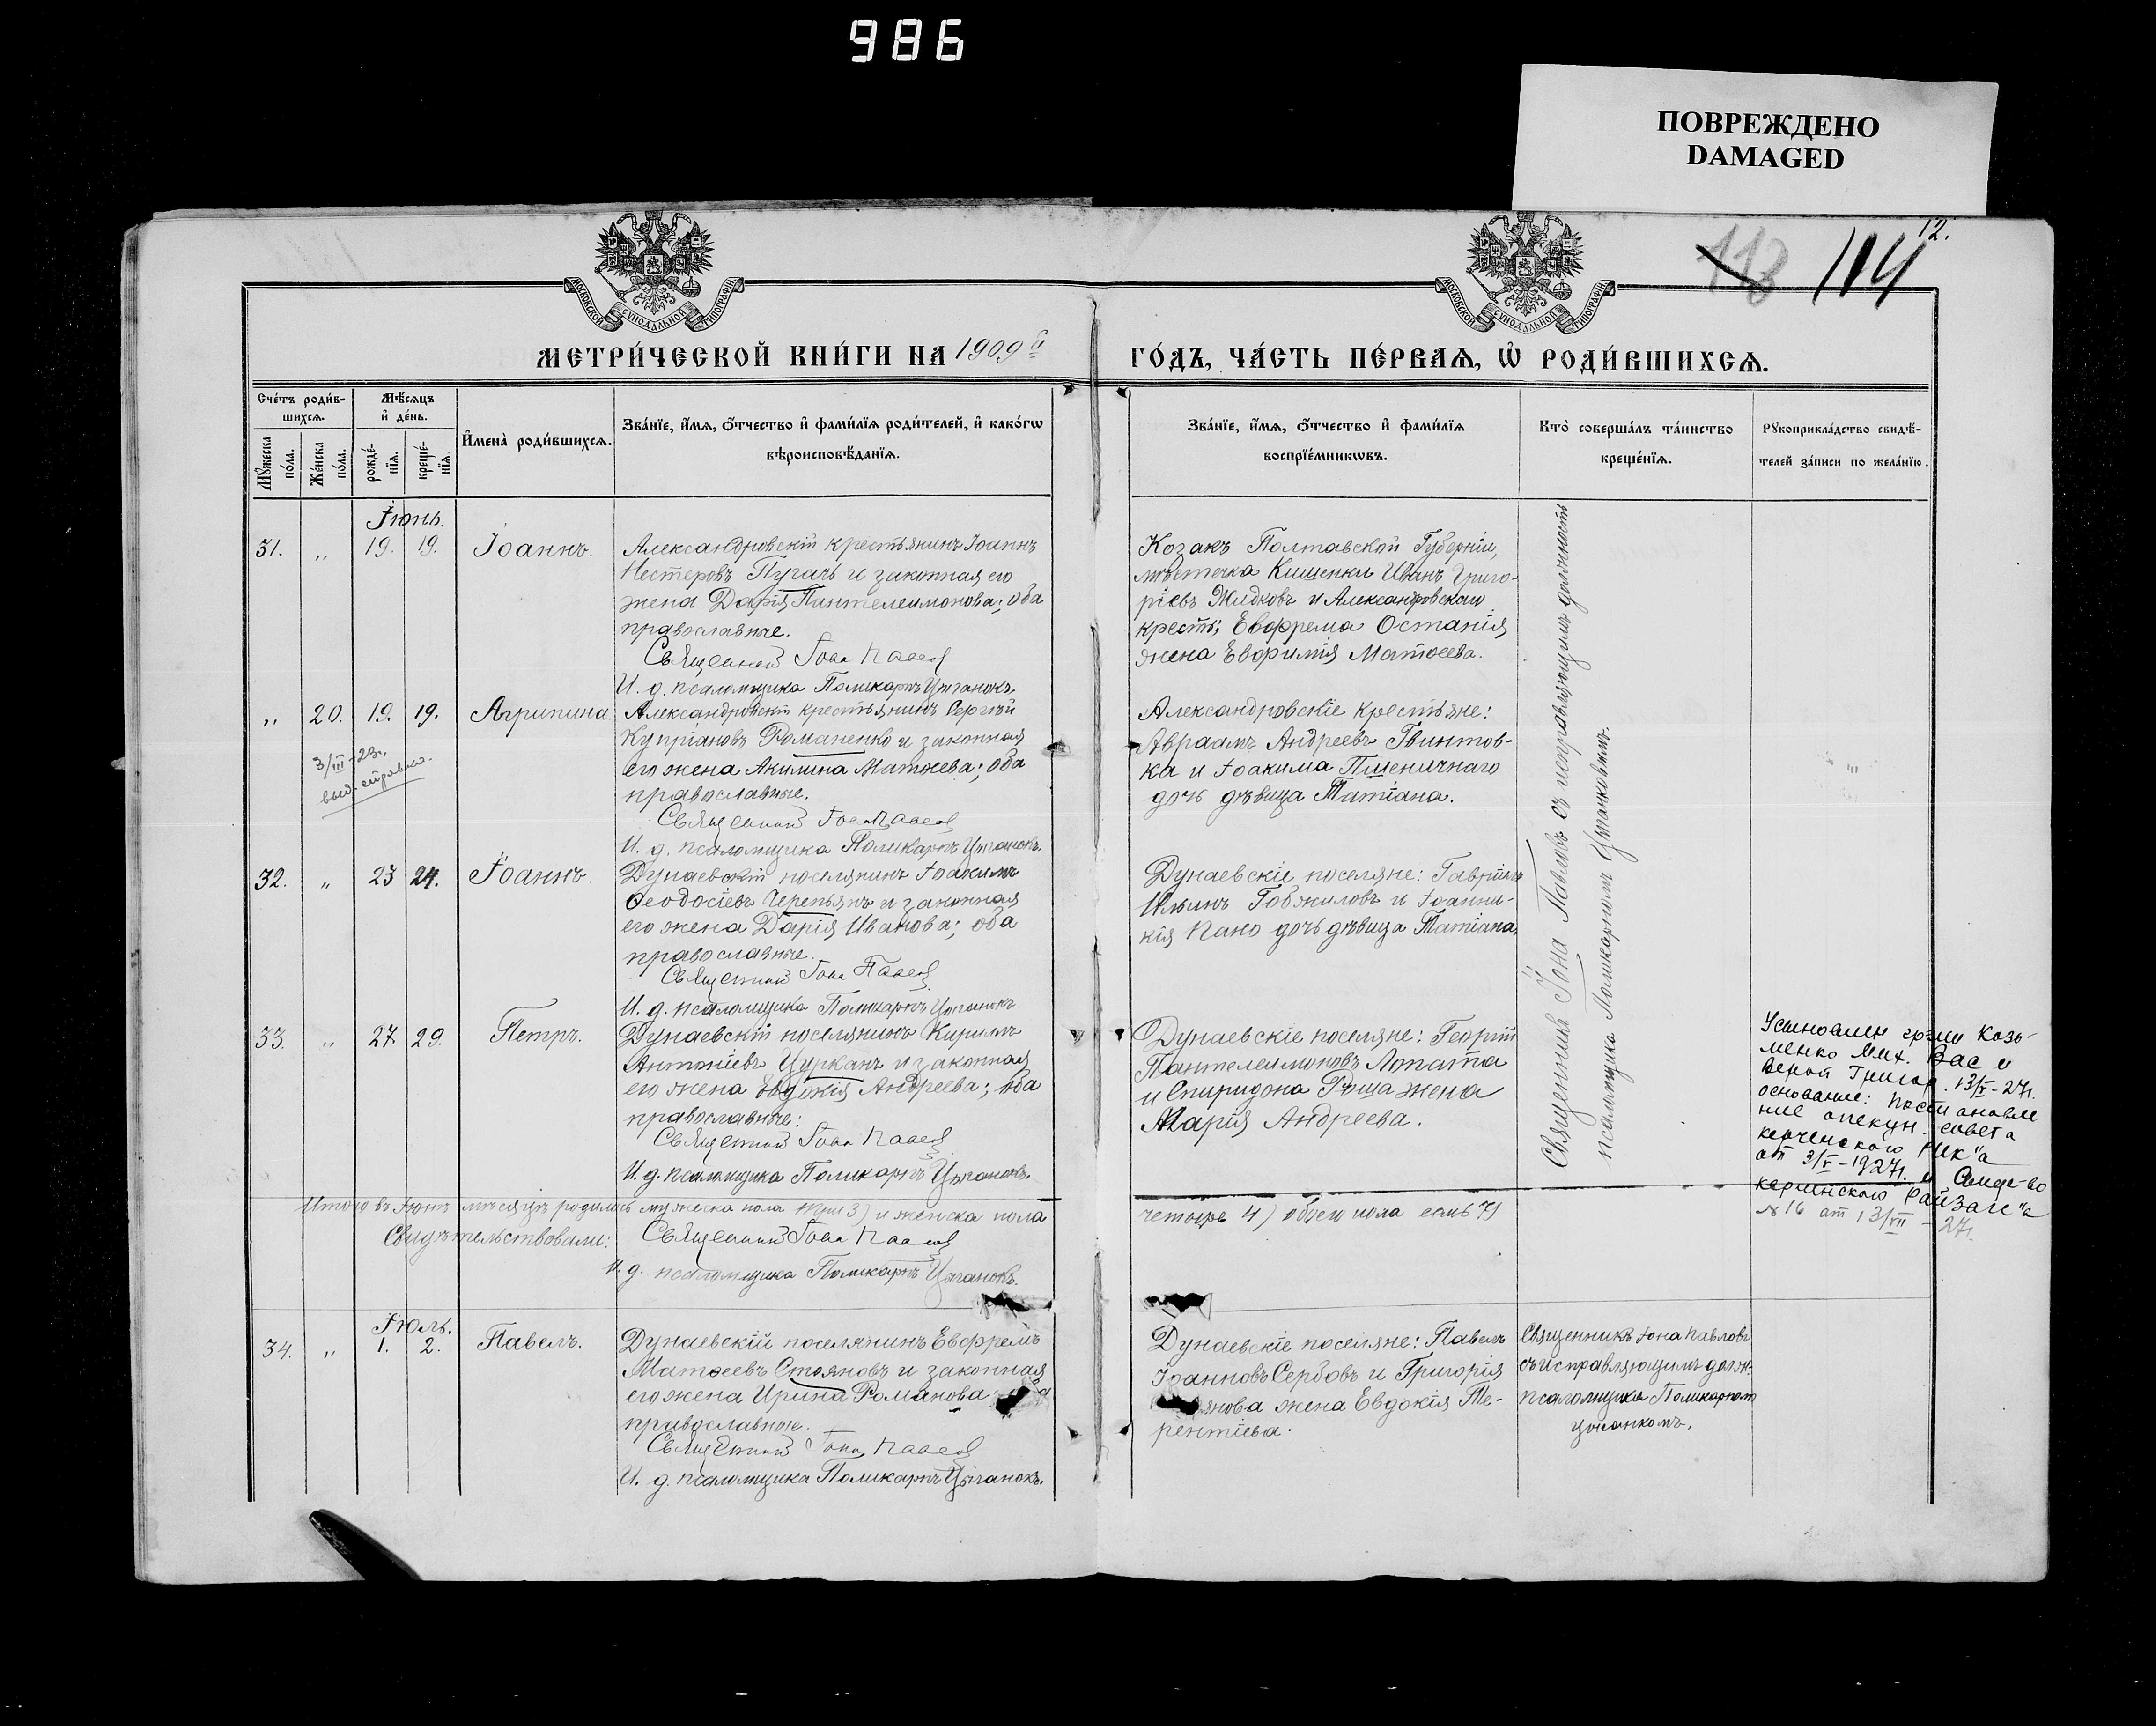 986
ПОВРЕЖДЕНО
DAMAGED
12.
118 114
МОСКОВСКОЙ СУНОДАЛЬНОЙ ТИПОГРАФІИ
МОСКОВСКОЙ СУНОДАЛЬНОЙ ТИПОГРАФІИ
МЕТРИ́ЧЕСКОЙ КНИ́ГИ НА 1909й
ГО́ДЪ, ЧА́СТЬ ПЕ́РВАѦ, Ѡ҆ РОДИ́ВШИХСѦ.
Сче́тъ роди́в-
шихсѧ.
Мѣ́сѧцъ
и҆ де́нь.
Мꙋ́жеска
по́ла.
Же́нска
по́ла.
рожде́-
нїѧ.
креще́-
нїѧ.
И҆мена̀ роди́вшихсѧ.
Зва́нїе, и҆́мѧ, ѻ҆́тчество и҆ фами́лїѧ роди́телей, и҆ како́гѡ
вѣроисповѣ́данїѧ.
Зва́нїе, и҆́мѧ, ѻ҆́тчество и҆ фами́лїѧ
воспрїе́мникѡвъ.
Кто̀ соверша́лъ та́инство
креще́нїѧ.
Рꙋкоприкла́дство свидѣ́-
телей за́писи по жела́нїю.
Іюнь.
31. „ 19. 19. Іоаннъ.
Александровскій крестьянинъ Іоаннъ
Нестеровъ Пугачъ и законная его
жена Дарія Пантелеимонова; оба
православные.
Священник Іона Павлов
И. д. псаломщика Поликарпъ Цыганокъ.
Козакъ Полтавской Губерніи,
мѣстечка Кишенки Иванъ Григо-
ріевъ Жидковъ и Александровскаго
крест. Евфрема Остапія
жена Евфимія Матѳеева.
„ 20. 19. 19. Агрипина
Александровскій крестьянинъ Сергій
Купріановъ Романенко и законная
его жена Акилина Матѳеева; оба
православные.
Священник Іона Павлов
И. д. псаломщика Поликарпъ Цыганокъ.
3/III-23г.
выд. справка.
Александровскіе крестьяне:
Авраамъ Андреевъ Гвинтов-
ка и Іоакима Пшеничнаго
дочь дѣвица Татіана.
32. „ 23 24. Іоаннъ.
Дунаевскій поселянинъ Іоакимъ
Ѳеодосіевъ Черепьянъ и законная
его жена Дарія Иванова; оба
православные.
Священник Іона Павлов
И. д. псаломщика Поликарпъ Цыганокъ.
Дунаевскіе поселяне: Гавріилъ
Ильинъ Гобжиловъ и Іоанни-
кія Пано дочь дѣвица Татіана.
33. „ 27 29. Петръ.
Дунаевскій поселянинъ Кирилъ
Антоніевъ Цурканъ и законная
его жена Евдокія Андреева; оба
православные:
Священник Іона Павлов
И. д. псаломщика Поликарпъ Цыганокъ.
Дунаевскіе поселяне: Георгій
Пантелеимоновъ Лопата
и Спиридона Роша жена
Марія Андреева.
Священникъ Іона Павловъ съ исправляющимъ должность
псаломщика Поликарпомъ Цыганковымъ.
Усыновлен гр-ми Козь-
менко Мих. Вас и
Верой Григор. 13/V-27г.
основание: постановле
ние опекун. совета
керченского РИК"а
от 3/V-1927г. и Свиде-во
керчинского РайЗаг"а
№16 от 13/VII-27г.
Итого въ Іюнѣ мѣсяцѣ родилось мужеска пола три 3) и женска пола
четыре 4) обоего пола семь 7)
Свидѣтельствовали: Священник Іона Павлов
И. д. псаломщика Поликарпъ Цыганокъ.
Іюль.
34. „ 1. 2. Павелъ.
Дунаевскій поселянинъ Евфремъ
Матѳеевъ Стояновъ и законная
его жена Ирина Романова
православные.
Священник Іона Павлов
И. д. псаломщика Поликарпъ Цыганокъ.
Дунаевскіе поселяне: Павелъ
Іоанновъ Сербовъ и Григорія
янова жена Евдокія Те-
рентіева.
Священникъ Іона Павловъ
съ исправляющимъ долж.
псаломщика Поликарпом
Цыганкомъ.